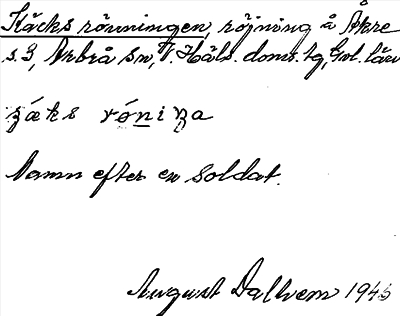 Käcks rönningen, röjning å Åkre
s. 3, Arbrå sn, V. Häls. doms. tg, Gvl. län
Namn efter en soldat.
August Dalhem 1945